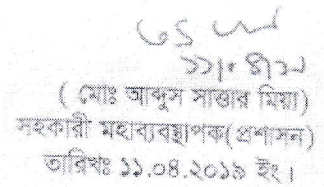 ( মোঃ আব্দুস সাত্তার মিয়া)
সহকারী মহাব্যবস্থাপক(প্রশাসন)
তারিখঃ ১১.০৪.২০১৯ ইং।